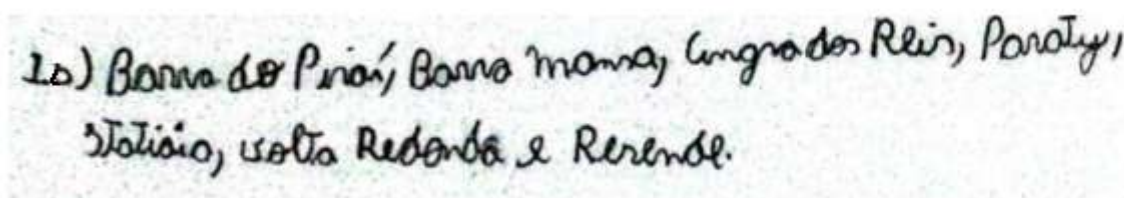 1b) Barra do Piraí, Barra mansa, Angra dos Reis, Paraty,
Itatiaia, volta Redonda e Resende.